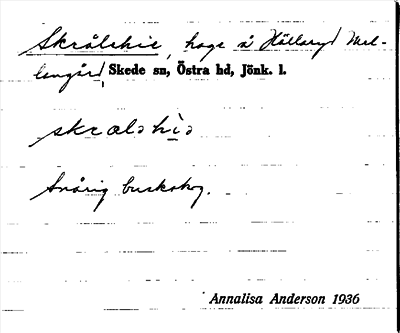 Skrålehie, hage å Hållaryd Mel-
langård, Skede sn, Östra hd, Jönk. l.
skrælə hìə
Snårig buskskog.
Annalisa Anderson 1936